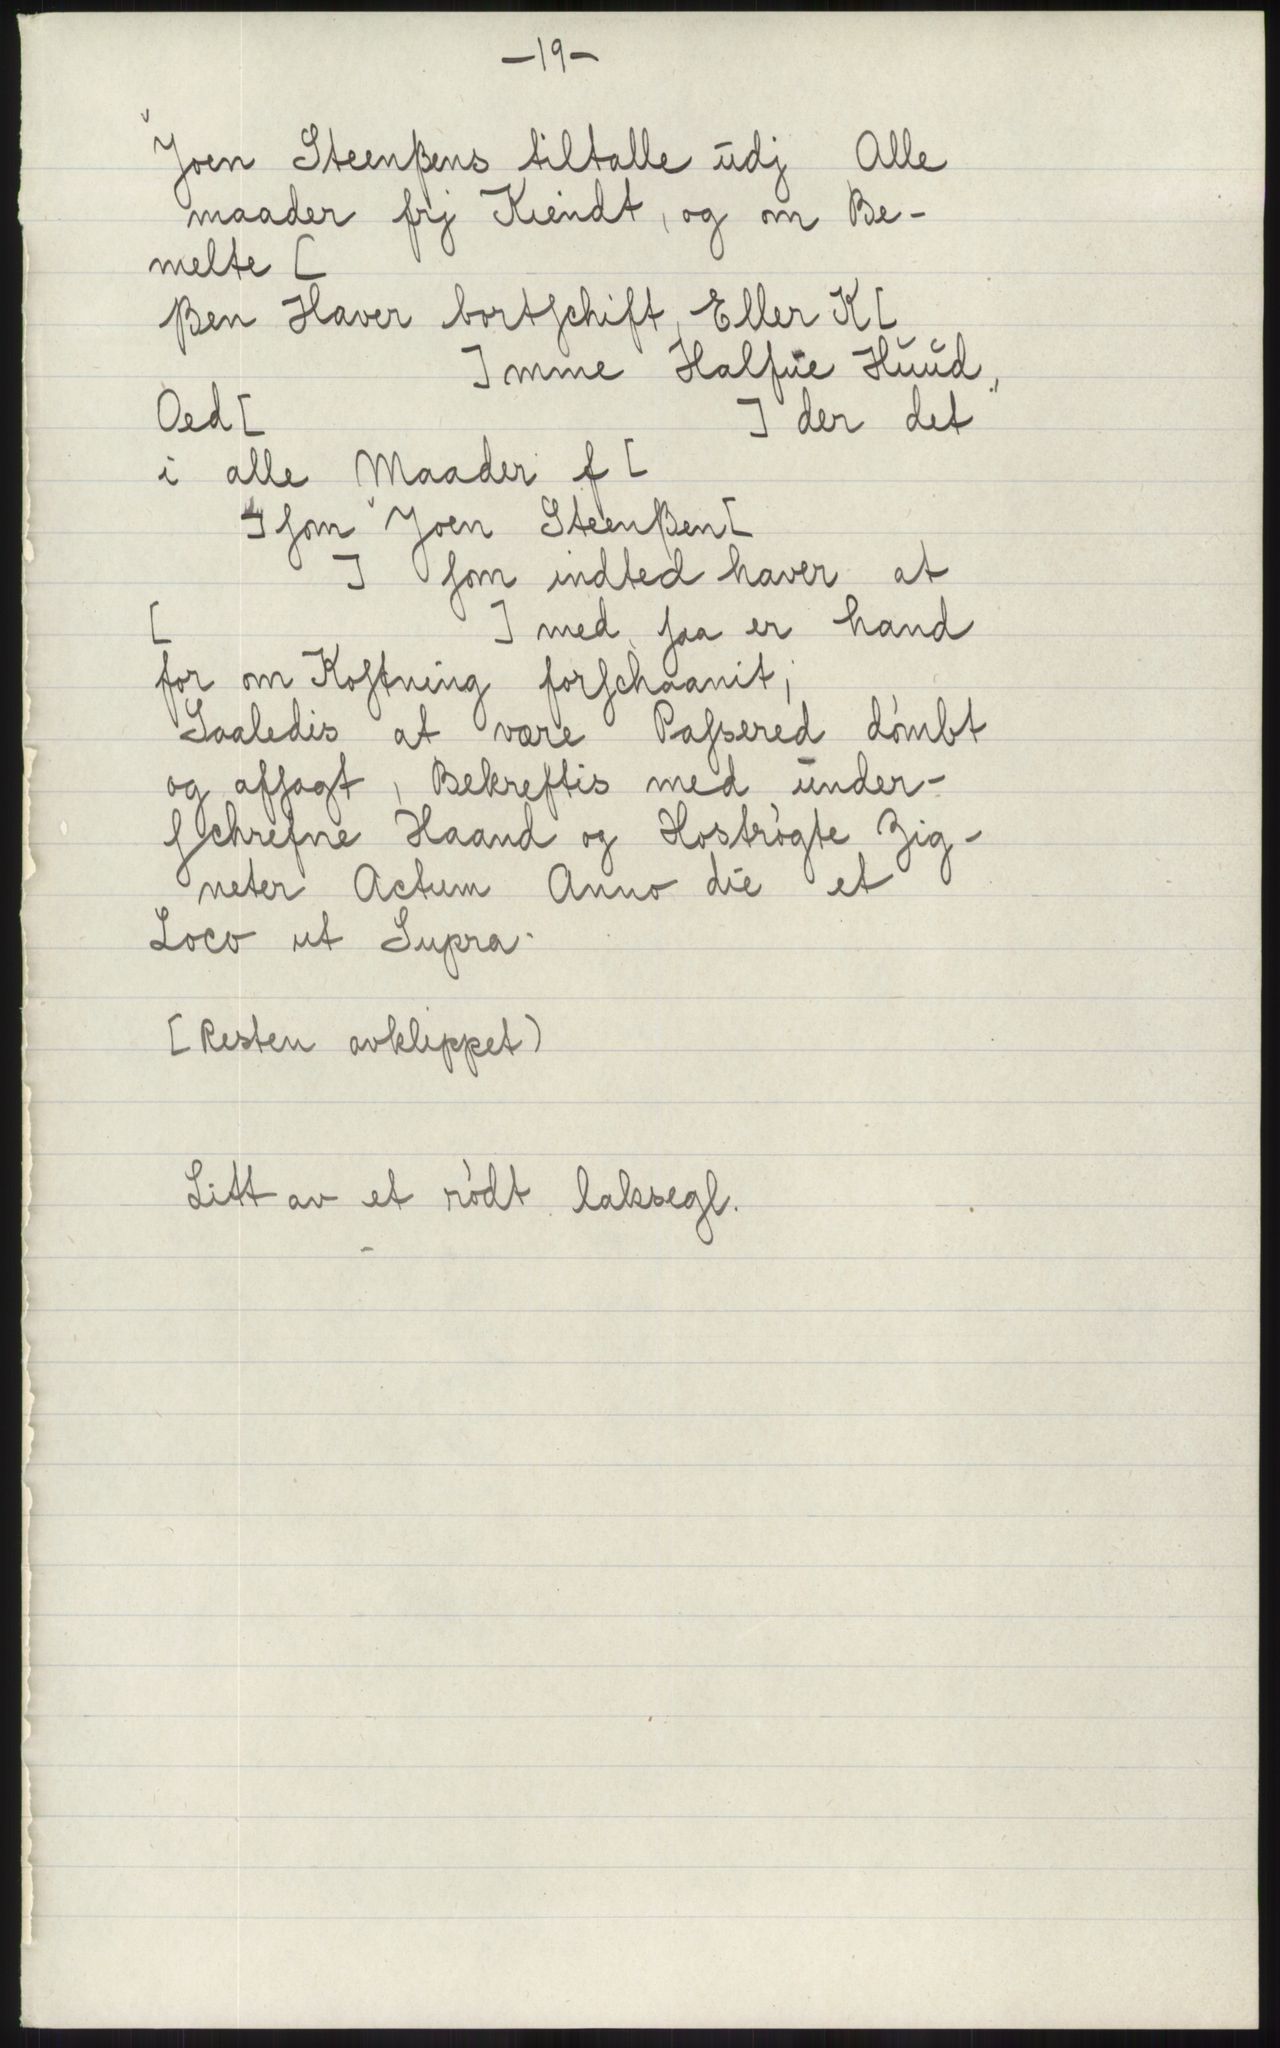 -19-
Joen Steenßens tiltalle ūdj Alle
maader frj Kiendt, og om Be-
melte [
ßen Haver bortſchift, Eller K[
]mme Halfūe Hūūd,
Oed[ ] der det
i alle Maader f[
] ſom Joen Steenßen[
] ſom indted haver at
[ ] med, ſaa er hand
for om Koſtning forſchaanit;
Saaledis at være Paſsered dømbt
og afſagt, Bekreftis med ūnder-
ſchrefne Haand og Hostrøgte Zig-
neter Actum Anno die et
Loco ut Supra.
[Resten avklippet)
Litt av et rødt laksegl.